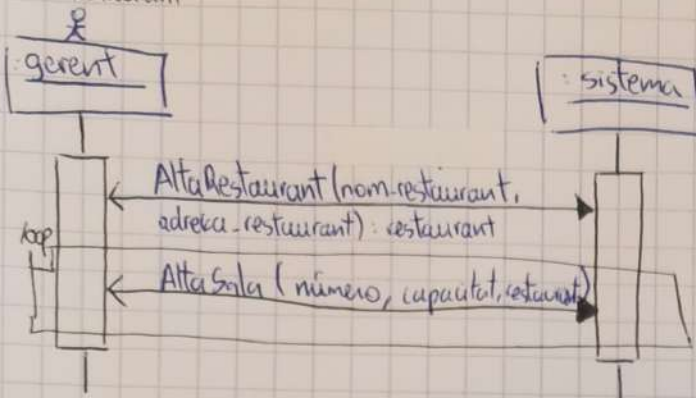 : gerent
: sistema
AltaRestaurant (nom-restaurant,
adreça-restaurant) : restaurant
loop
AltaSala ( número, capacitat, restaurant)